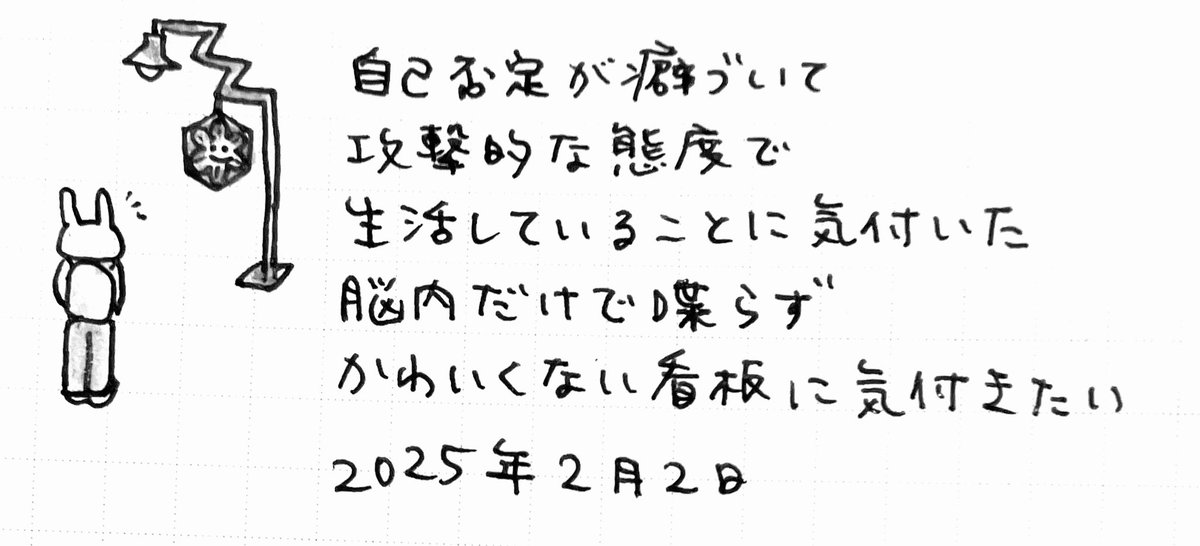 自己否定が癖づいて
攻撃的な態度で
生活していることに気付いた
脳内だけで喋らず
かわいくない看板に気付きたい
2025年2月2日